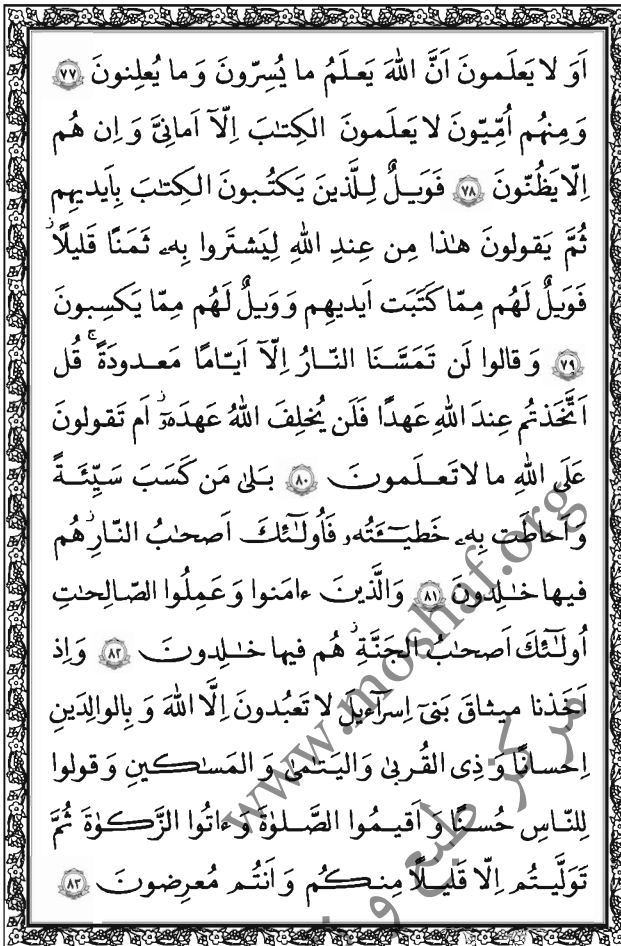 اَوَ لا يَعلَمونَ اَنَّ اللهَ يَعلَمُ ما يُسِرّونَ وَ ما يُعلِنونَ ﴿٧٧﴾
وَ مِنهُم اُمِّيّونَ لا يَعلَمونَ الكِتٰبَ اِلّآ اَمانِيَّ وَ اِن هُم
اِلّا يَظُنّونَ ﴿٧٨﴾ فَوَيلٌ لِلَّذينَ يَكتُبونَ الكِتٰبَ بِاَيديهِم
ثُمَّ يَقولونَ هٰذا مِن عِندِ اللهِ لِيَشتَروا بِهٖ ثَمَنًا قَليلًا ۖ
فَوَيلٌ لَهُم مِمّا كَتَبَت اَيديهِم وَ وَيلٌ لَهُم مِمّا يَكسِبونَ
﴿٧٩﴾ وَ قالوا لَن تَمَسَّنَا النّارُ اِلّآ اَيّامًا مَعدودَةً ۚ قُل
اَتَّخَذتُم عِندَ اللهِ عَهدًا فَلَن يُخلِفَ اللهُ عَهدَهٗ ۖ اَم تَقولونَ
عَلَى اللهِ ما لا تَعلَمونَ ﴿٨٠﴾ بَلىٰ مَن كَسَبَ سَيِّئَةً
وَ اَحاطَت بِهٖ خَطيـٓئَتُهٗ فَاُولٰٓئِكَ اَصحٰبُ النّارِ ۖ هُم
فيها خٰلِدونَ ﴿٨١﴾ وَالَّذينَ ءامَنوا وَ عَمِلُوا الصّالِحٰتِ
اُولٰٓئِكَ اَصحٰبُ الجَنَّةِ ۖ هُم فيها خٰلِدونَ ﴿٨٢﴾ وَ اِذ
اَخَذنا ميثاقَ بَنىٓ اِسرآءيلَ لا تَعبُدونَ اِلَّا اللهَ وَ بِالوالِدَينِ
اِحسانًا وَ ذِى القُربىٰ وَاليَتٰمىٰ وَ المَسٰكينِ وَ قولوا
لِلنّاسِ حُسنًا وَ اَقيمُوا الصَّلوٰةَ وَ ءاتُوا الزَّكوٰةَ ثُمَّ
تَوَلَّيتُم اِلّا قَليلًا مِنكُم وَ اَنتُم مُعرِضونَ ﴿٨٣﴾
www.moshaf.org
مركز طبع و